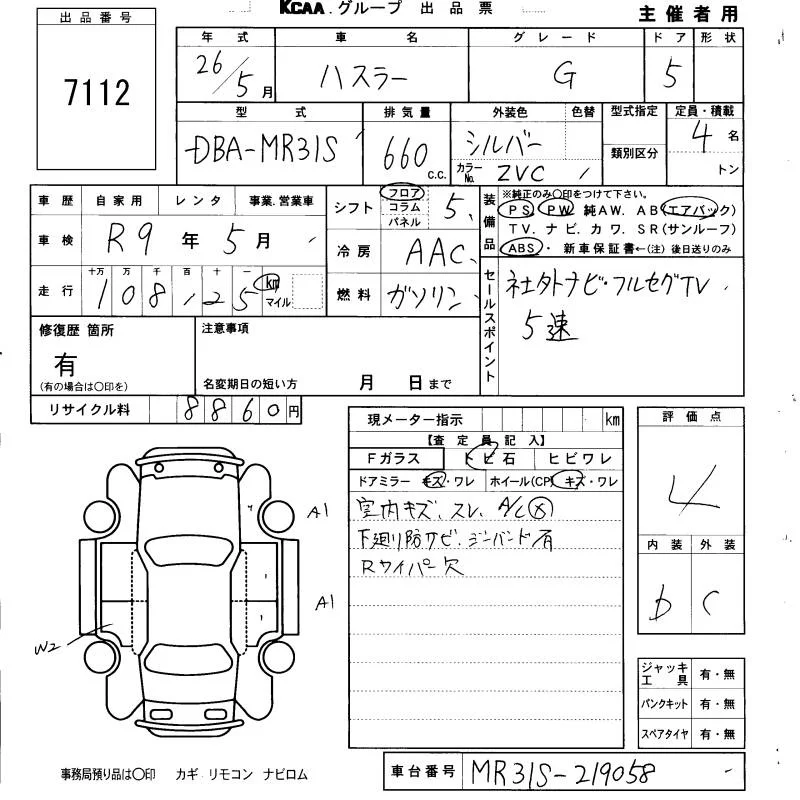 KCAA.グループ 出品票
主催者用
出品番号
7112
年式 車名 グレード ドア 形状
26/5月 ハスラー G 5
型式 排気量 外装色 色替 型式指定 定員・積載
DBA-MR31S 660 c.c. シルバー カラーNo. ZVC 類別区分 4名 トン
車歴 自家用 レンタ 事業.営業車
車検 R9年5月
走行 十万 万 千 百 十 一
108,125 km マイル
シフト フロア コラム パネル 5
冷房 AAC
燃料 ガソリン
装備品 ※純正のみ○印をつけて下さい。
PS PW 純AW. AB(エアバック)
TV. ナビ. カワ. SR(サンルーフ)
ABS・新車保証書←(注)後日送りのみ
セールスポイント 社外ナビ・フルセグTV
5速
修復歴 箇所
有
(有の場合は○印を)
注意事項
名変期日の短い方 月 日まで
リサイクル料 8860円
現メーター指示 km
【査定員記入】
Fガラス トビ石 ヒビワレ
ドアミラー キズ・ワレ ホイール(CP) キズ・ワレ
室内キズ、スレ、A/C
下廻り防サビ、 有
Rワイパー欠
評価点
4
内装 外装
b C
A1
A1
W2
ジャッキ工具 有・無
パンクキット 有・無
スペアタイヤ 有・無
事務局預り品は○印 カギ リモコン ナビロム
車台番号 MR31S-219058